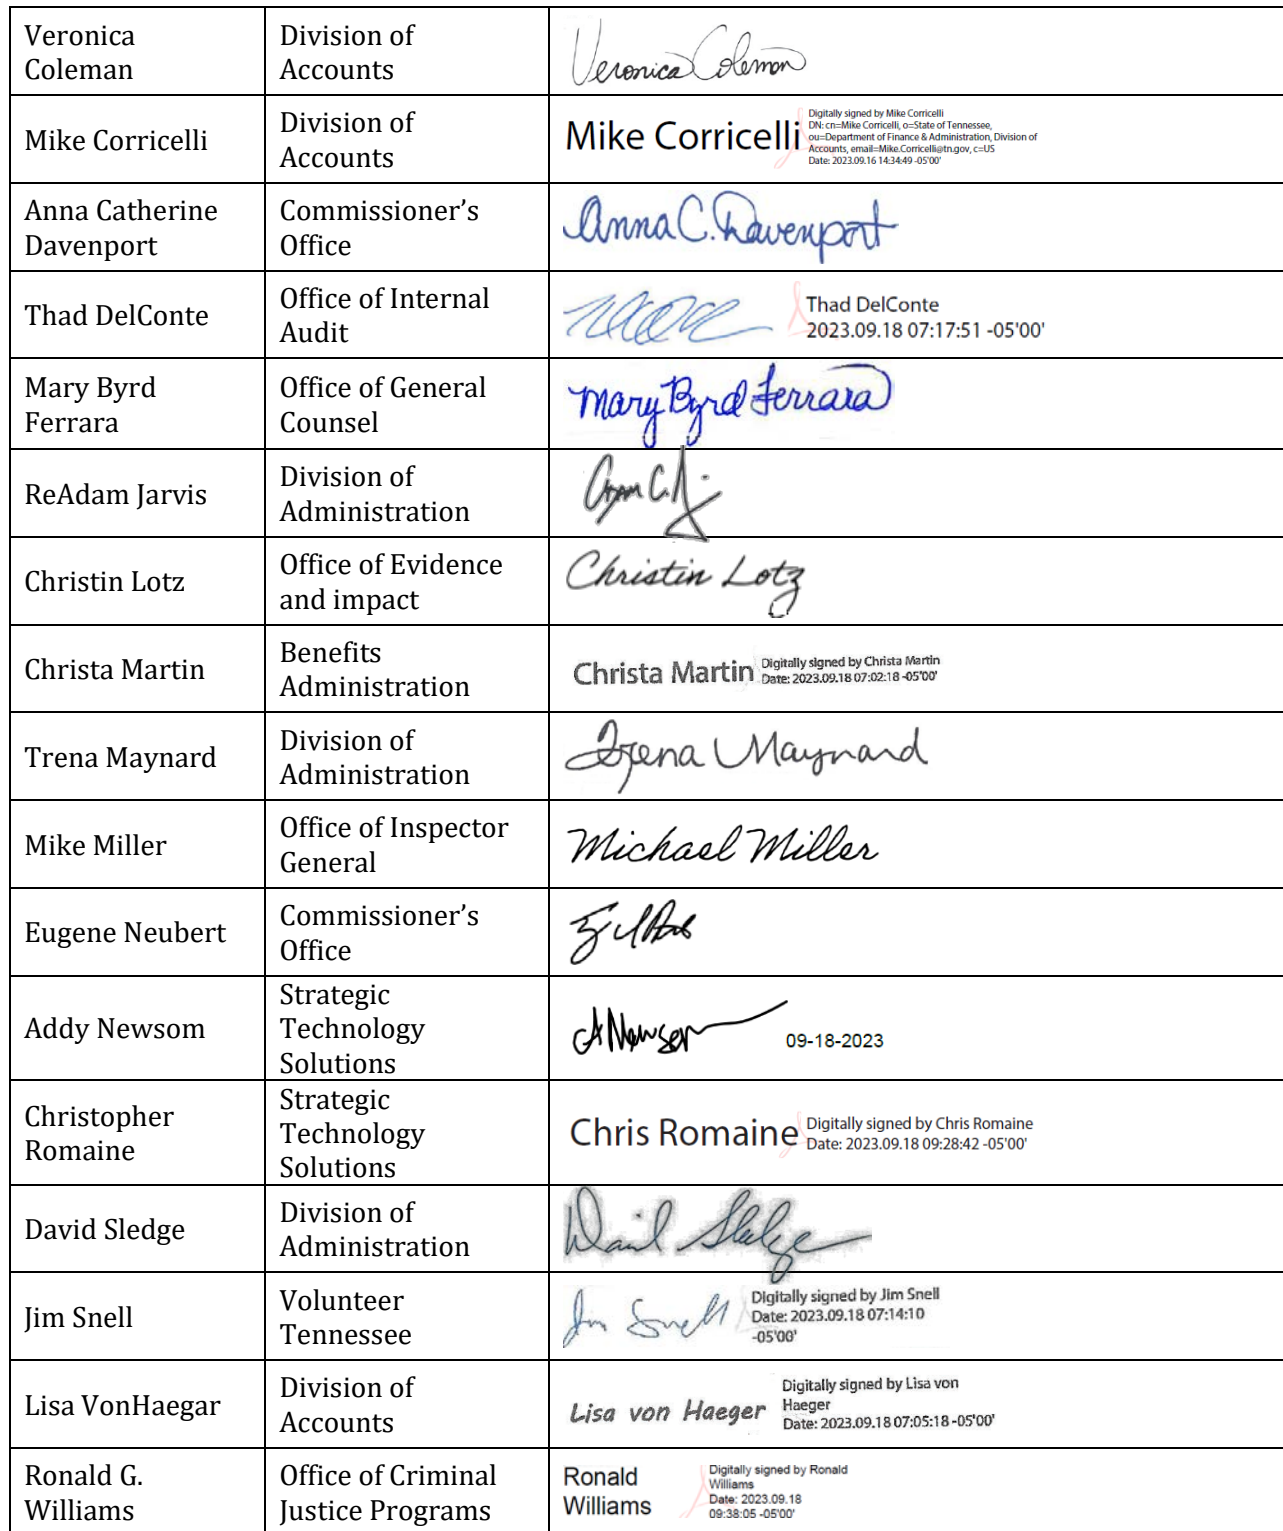 Veronica
Coleman
Division of
Accounts
Veronica Coleman
Mike Corricelli
Division of
Accounts
Mike Corricelli
Digitally signed by Mike Corricelli
DN: cn=Mike Corricelli, o=State of Tennessee,
ou=Department of Finance & Administration, Division of
Accounts, email=Mike.Corricelli@tn.gov, c=US
Date: 2023.09.16 14:34:49 -05'00'
Anna Catherine
Davenport
Commissioner's
Office
Anna C. Davenport
Thad DelConte
Office of Internal
Audit
Thad DelConte
2023.09.18 07:17:51 -05'00'
Mary Byrd
Ferrara
Office of General
Counsel
Mary Byrd Ferrara
ReAdam Jarvis
Division of
Administration
Christin Lotz
Office of Evidence
and impact
Christin Lotz
Christa Martin
Benefits
Administration
Christa Martin
Digitally signed by Christa Martin
Date: 2023.09.18 07:02:18 -05'00'
Trena Maynard
Division of
Administration
Trena Maynard
Mike Miller
Office of Inspector
General
Michael Miller
Eugene Neubert
Commissioner's
Office
Addy Newsom
Strategic
Technology
Solutions
A Newsom
09-18-2023
Christopher
Romaine
Strategic
Technology
Solutions
Chris Romaine
Digitally signed by Chris Romaine
Date: 2023.09.18 09:28:42 -05'00'
David Sledge
Division of
Administration
David Sledge
Jim Snell
Volunteer
Tennessee
Jim Snell
Digitally signed by Jim Snell
Date: 2023.09.18 07:14:10
-05'00'
Lisa VonHaegar
Division of
Accounts
Lisa von Haeger
Digitally signed by Lisa von
Haeger
Date: 2023.09.18 07:05:18 -05'00'
Ronald G.
Williams
Office of Criminal
Justice Programs
Ronald
Williams
Digitally signed by Ronald
Williams
Date: 2023.09.18
09:38:05 -05'00'